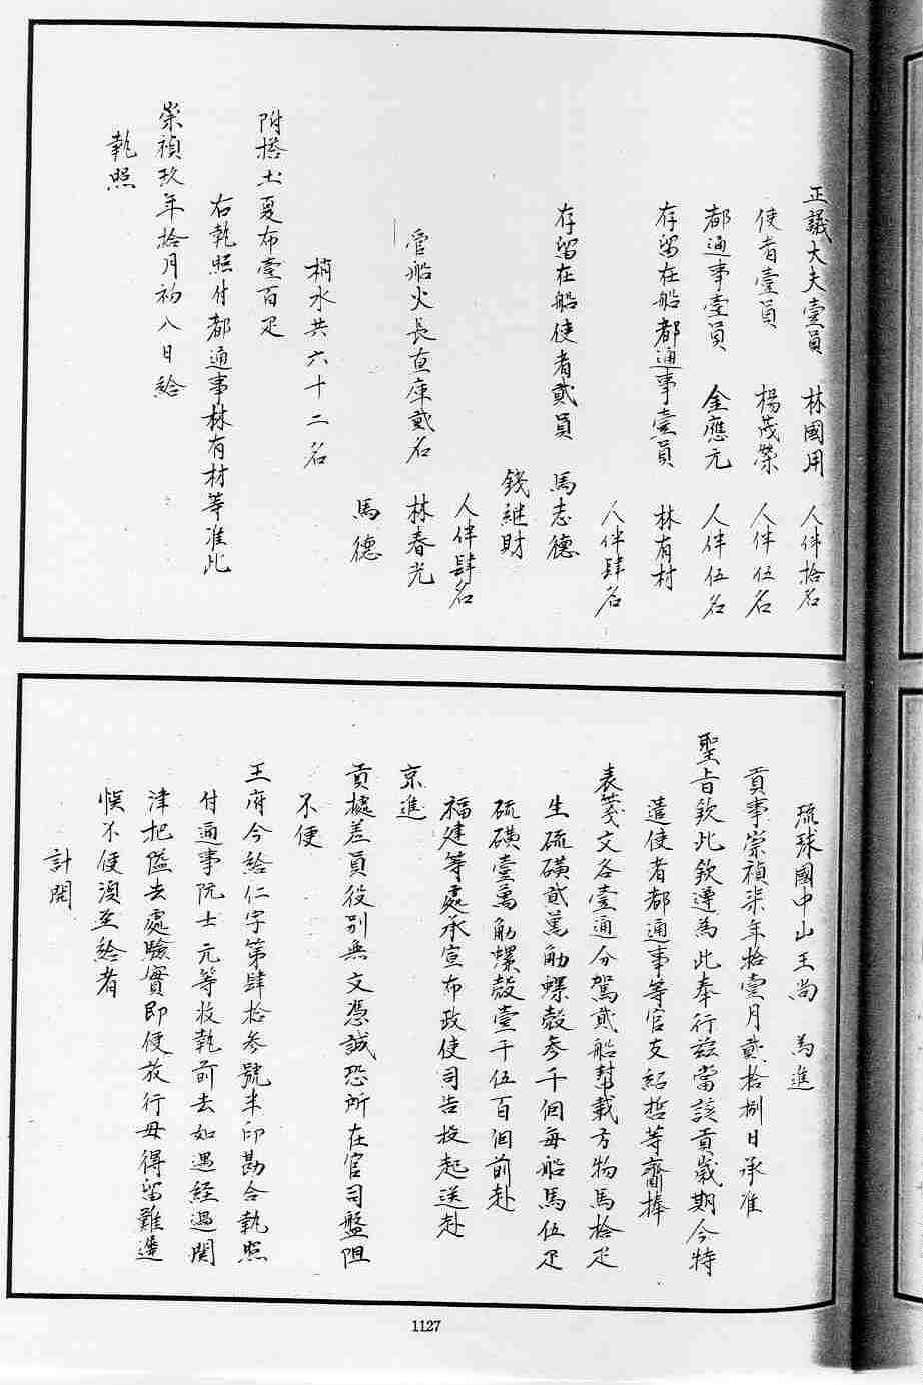 正議大夫壹員　林國用　人伴拾名
使者壹員　楊茂榮　人伴伍名
都通事壹員　金應元　人伴伍名
存留在船都通事壹員　林有材
人伴肆名
存留在船使者貳員　馬志德
錢継財
人伴肆名
管船火長直庫貳名　林春光
馬德
梢水共六十二名
附搭土夏布壹百疋
右執照付都通事林有材等准此
崇禎玖年拾月初八日給
執照
琉球國中山王尚　為進
貢事崇禎柒年拾壹月貳拾捌日承准
聖旨欽此欽遵為此奉行茲當該貢歲期今特
遣使者都通事等官支紹哲等齎捧
表箋文各壹通分駕貳船幇載方物馬拾疋
生硫磺貳萬觔螺殼參千個每船馬伍疋
硫磺壹萬觔螺殼壹千伍百個前赴
福建等處承宣布政使司告投起送赴
京進
貢據差員役別無文憑誠恐所在官司盤阻
不便
王府今給仁字第肆拾參號半印勘合執照
付通事阮士元等收執前去如遇經過関
津把隘去處驗實即便放行毋得留難遲
悞不便須至給者
計開
1127